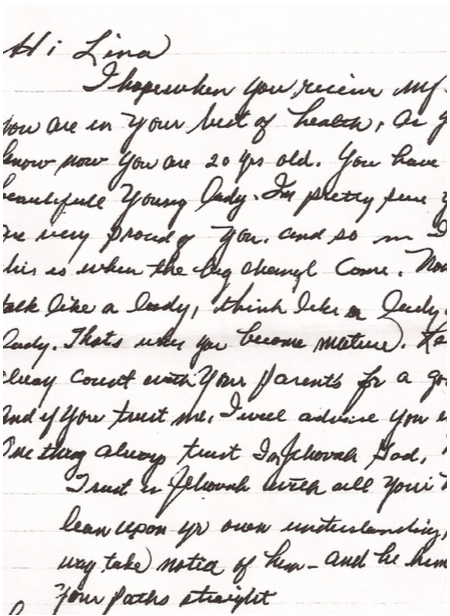 Hi Lina
I hope when you receive my
you are in your best of health, as y
know now you are 20 yrs old. You have
beautifull young lady. I'm pretty sure y
are very proud of you, and so am I
his is when the big change come. Now
talk like a lady, think like a lady,
lady. Thats when you become mature.
alway count with your parents for a go
and if you trust me, I will advise you
One thing always trust In Jehovah God,
Trust in Jehovah with all your
lean upon yr own understanding,
way take notice of him - and he him
Your paths straight